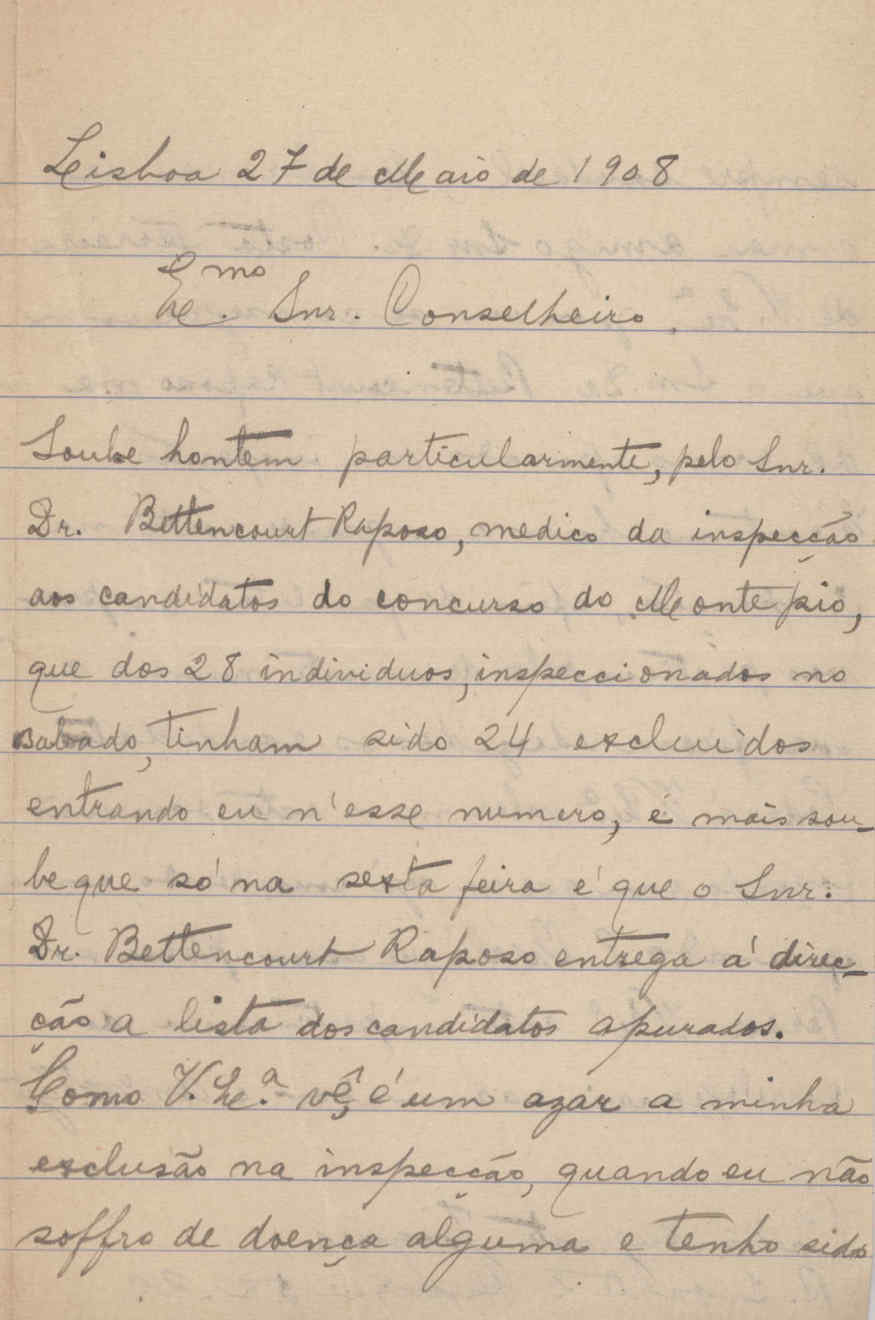 Lisboa 27 de Maio de 1908
Exmo. Snr. Conselheiro.
Soube hontem particularmente, pelo Snr.
Dr. Bettencourt Raposo, medico da inspecção
aos candidatos do concurso do Monte pio,
que dos 28 individuos, inspeccionados no
Sabado, tinham sido 24 excluidos
entrando eu n'esse numero, e mais sou-
be que só na sexta feira é que o Snr.
Dr. Bettencourt Raposo entrega á direc-
ção a lista dos candidatos apurados.
Como V. Exª. vê, é um azar a minha
exclusão na inspecção, quando eu não
soffro de doença alguma e tenho sido